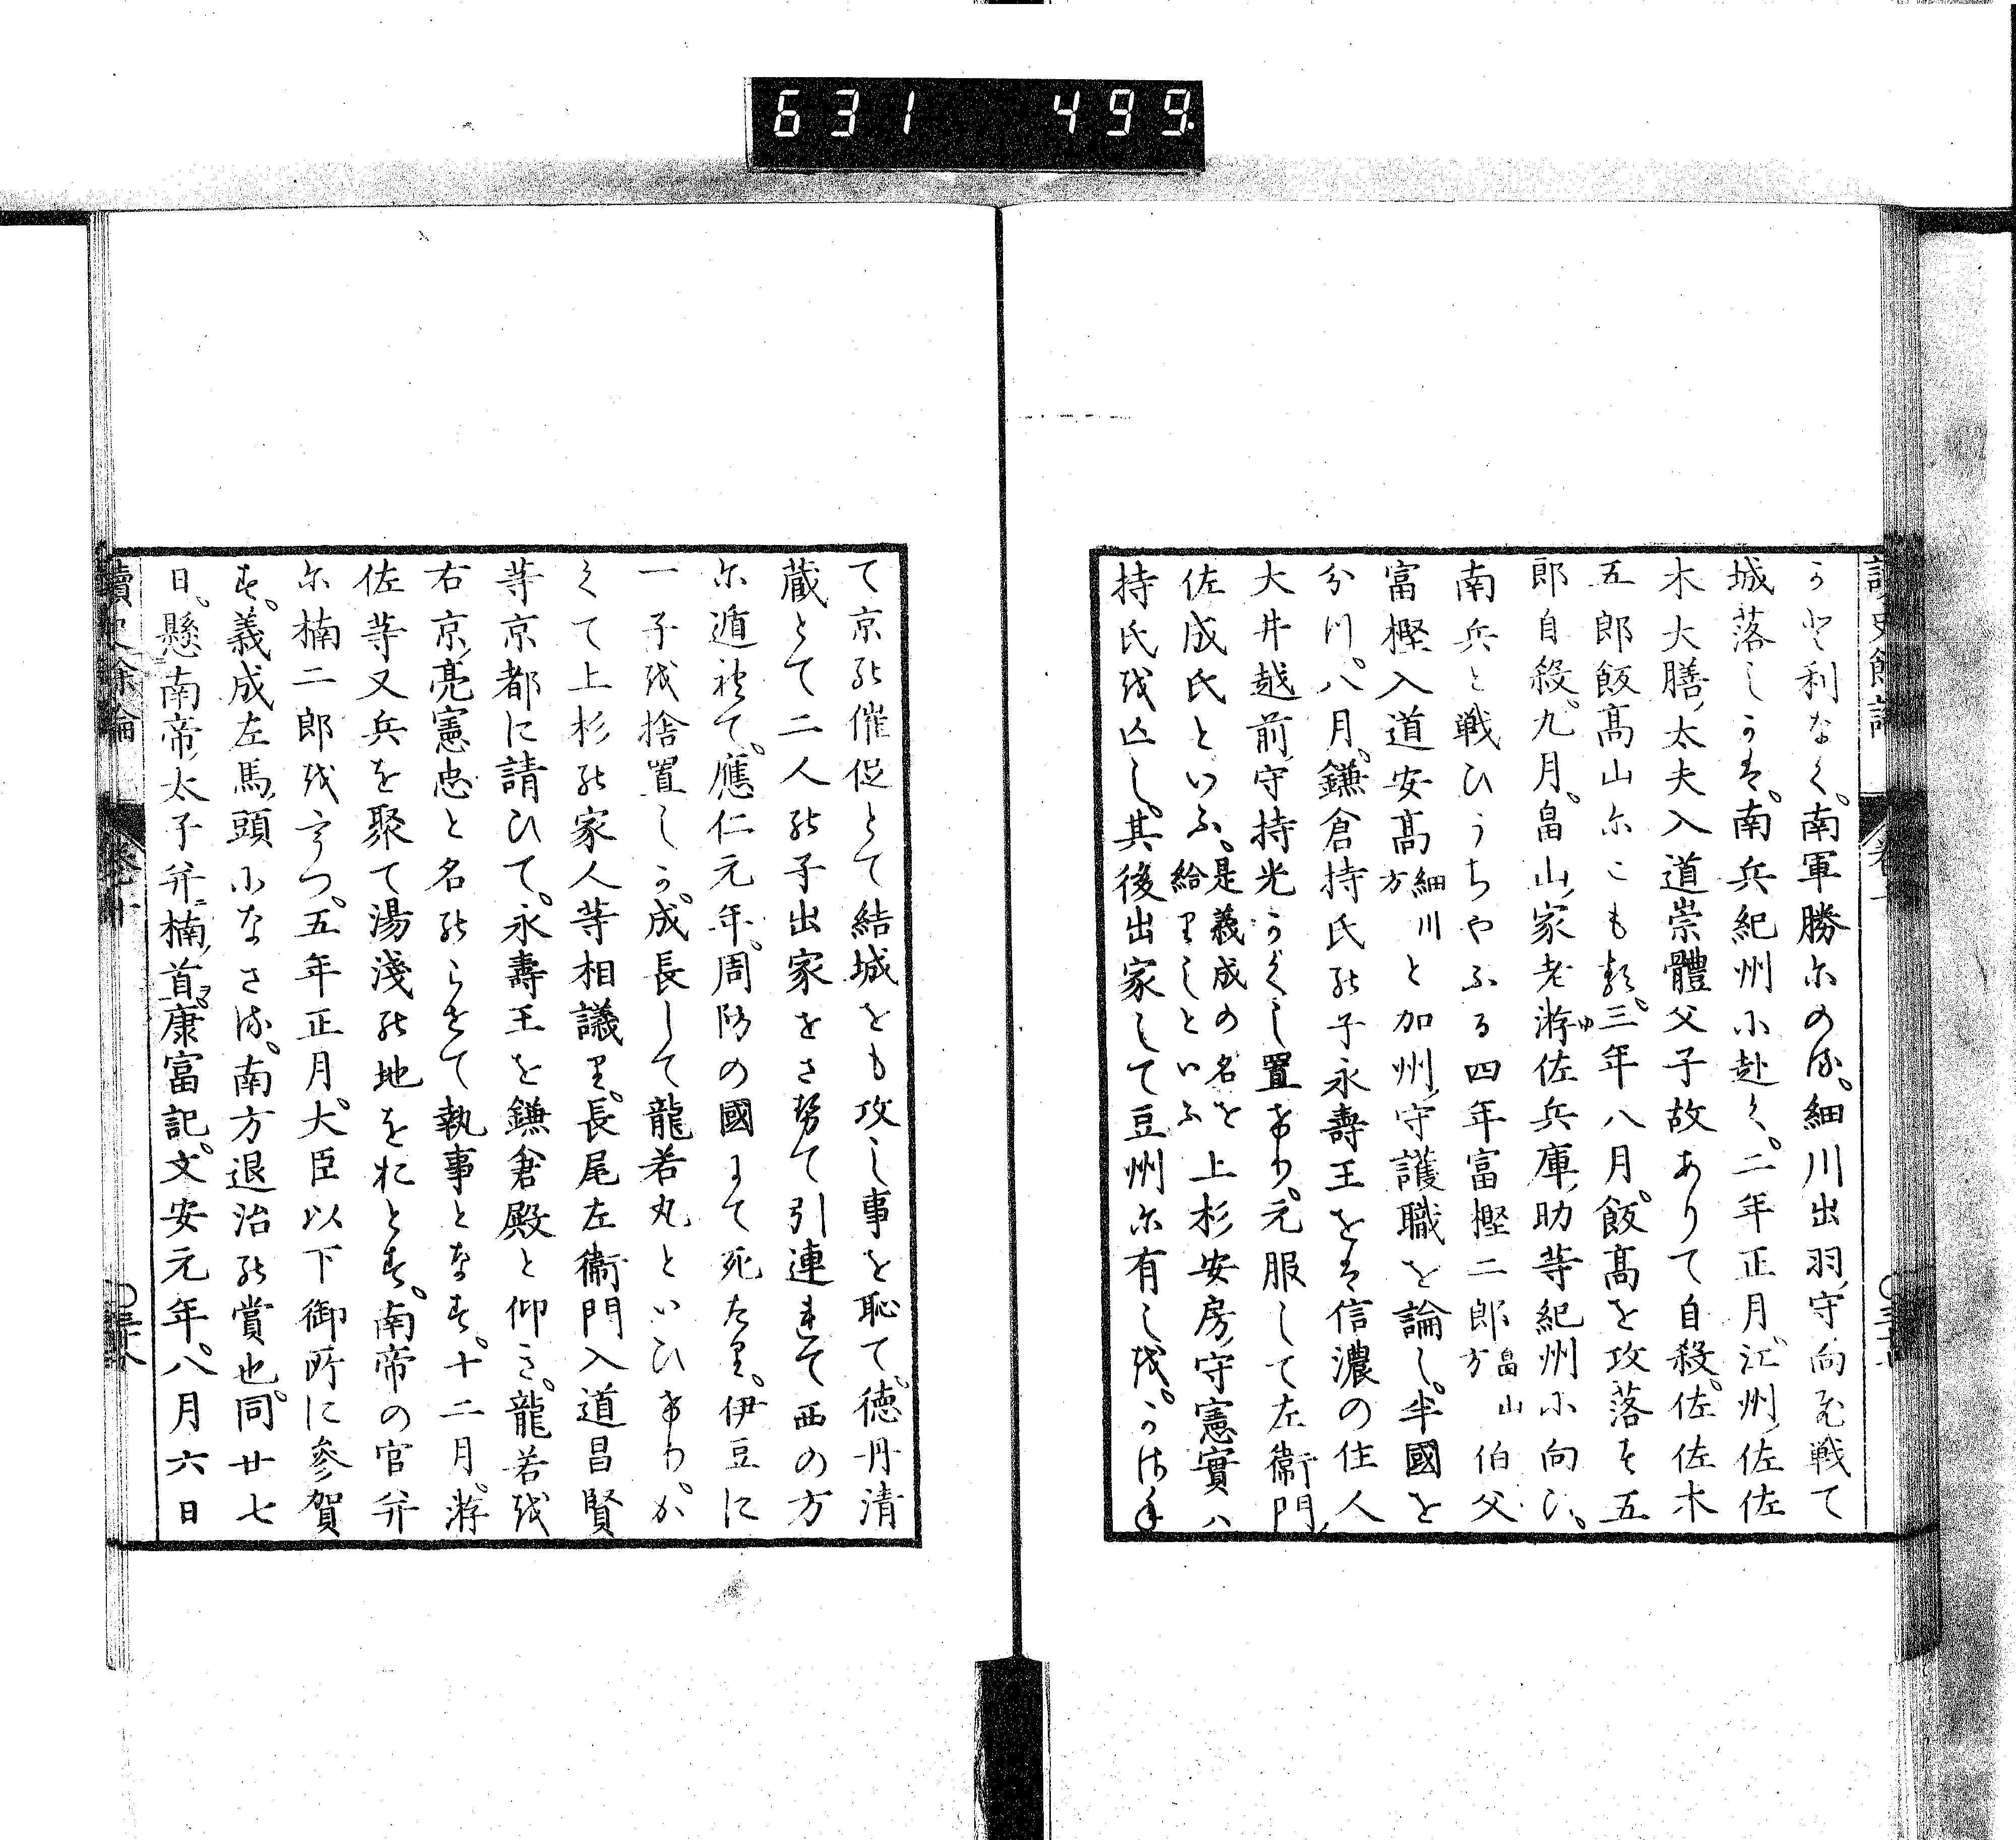 631 499
うど利なく。南軍勝にのる。細川出羽守向て戦て
城落しかば。南兵紀州に赴く。二年正月。江州佐佐
木大膳太夫入道崇體父子故ありて自殺。佐佐木
五郎飯髙山にこもる。三年八月。飯髙を攻落す五
郎自殺。九月。畠山家老游佐兵庫助等紀州に向ひ。
南兵と戦ひうちやふる四年富樫二郎畠山方伯父
富樫入道安髙細川方と加州守護職を論し。半國を
分川。八月。鎌倉持氏の子永壽王をば信濃の住人
大井越前守持光かくし置けり。元服して左衞門
佐成氏といふ。是義成の名を給りしといふ上杉安房守憲實ハ
持氏を亡し。其後出家して豆州に有しを。かけ
て京の催促とて結城をも攻し事を恥て。徳丹清
蔵とて二人の子出家をさせて引連れて西の方
に遁れて。應仁元年。周防の國にて死たり。伊豆に
一子を捨置しが。成長して龍若丸といひけり。か
くて上杉の家人等相議り。長尾左衞門入道昌賢
等京都に請ひて。永壽王を鎌倉殿と仰き。龍若を
右京亮憲忠と名のらせて執事となす。十二月。游
佐等又兵を聚て湯淺の地をおとす。南帝の官并
に楠二郎をうつ。五年正月。大臣以下御所に參賀
す。義成左馬頭になさる。南方退治の賞也。同廿七
日。懸南帝太子并楠首。康富記。文安元年。八月六日
讀史餘論 卷十